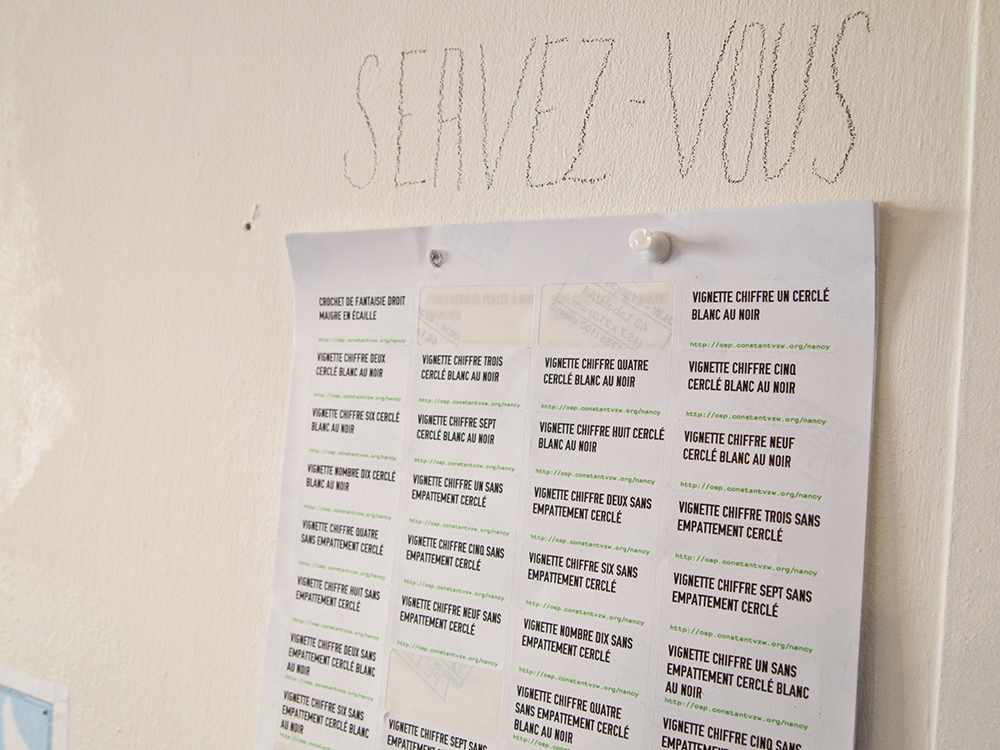 SERVEZ-VOUS
CROCHET DE FANTAISIE DROIT
MAIGRE EN ÉCAILLE
http://osp.constantvzw.org/nancy
VIGNETTE CHIFFRE UN CERCLÉ
BLANC AU NOIR
http://osp.constantvzw.org/nancy
VIGNETTE CHIFFRE DEUX
CERCLÉ BLANC AU NOIR
http://osp.constantvzw.org/nancy
VIGNETTE CHIFFRE TROIS
CERCLÉ BLANC AU NOIR
http://osp.constantvzw.org/nancy
VIGNETTE CHIFFRE QUATRE
CERCLÉ BLANC AU NOIR
http://osp.constantvzw.org/nancy
VIGNETTE CHIFFRE CINQ
CERCLÉ BLANC AU NOIR
http://osp.constantvzw.org/nancy
VIGNETTE CHIFFRE SIX CERCLÉ
BLANC AU NOIR
http://osp.constantvzw.org/nancy
VIGNETTE CHIFFRE SEPT
CERCLÉ BLANC AU NOIR
http://osp.constantvzw.org/nancy
VIGNETTE CHIFFRE HUIT CERCLÉ
BLANC AU NOIR
http://osp.constantvzw.org/nancy
VIGNETTE CHIFFRE NEUF
CERCLÉ BLANC AU NOIR
http://osp.constantvzw.org/nancy
VIGNETTE NOMBRE DIX CERCLÉ
BLANC AU NOIR
http://osp.constantvzw.org/nancy
VIGNETTE CHIFFRE UN SANS
EMPATTEMENT CERCLÉ
http://osp.constantvzw.org/nancy
VIGNETTE CHIFFRE DEUX SANS
EMPATTEMENT CERCLÉ
http://osp.constantvzw.org/nancy
VIGNETTE CHIFFRE TROIS SANS
EMPATTEMENT CERCLÉ
http://osp.constantvzw.org/nancy
VIGNETTE CHIFFRE QUATRE
SANS EMPATTEMENT CERCLÉ
http://osp.constantvzw.org/nancy
VIGNETTE CHIFFRE CINQ SANS
EMPATTEMENT CERCLÉ
http://osp.constantvzw.org/nancy
VIGNETTE CHIFFRE SIX SANS
EMPATTEMENT CERCLÉ
http://osp.constantvzw.org/nancy
VIGNETTE CHIFFRE SEPT SANS
EMPATTEMENT CERCLÉ
http://osp.constantvzw.org/nancy
VIGNETTE CHIFFRE HUIT SANS
EMPATTEMENT CERCLÉ
http://osp.constantvzw.org/nancy
VIGNETTE CHIFFRE NEUF SANS
EMPATTEMENT CERCLÉ
http://osp.constantvzw.org/nancy
VIGNETTE NOMBRE DIX SANS
EMPATTEMENT CERCLÉ
http://osp.constantvzw.org/nancy
VIGNETTE CHIFFRE UN SANS
EMPATTEMENT CERCLÉ BLANC
AU NOIR
http://osp.constantvzw.org/nancy
VIGNETTE CHIFFRE DEUX SANS
EMPATTEMENT CERCLÉ BLANC
AU NOIR
http://osp.constantvzw.org/nancy
VIGNETTE CHIFFRE QUATRE
SANS EMPATTEMENT CERCLÉ
BLANC AU NOIR
VIGNETTE CHIFFRE CINQ SANS
VIGNETTE CHIFFRE SIX SANS
EMPATTEMENT CERCLÉ BLANC
AU NOIR
VIGNETTE CHIFFRE SEPT SANS